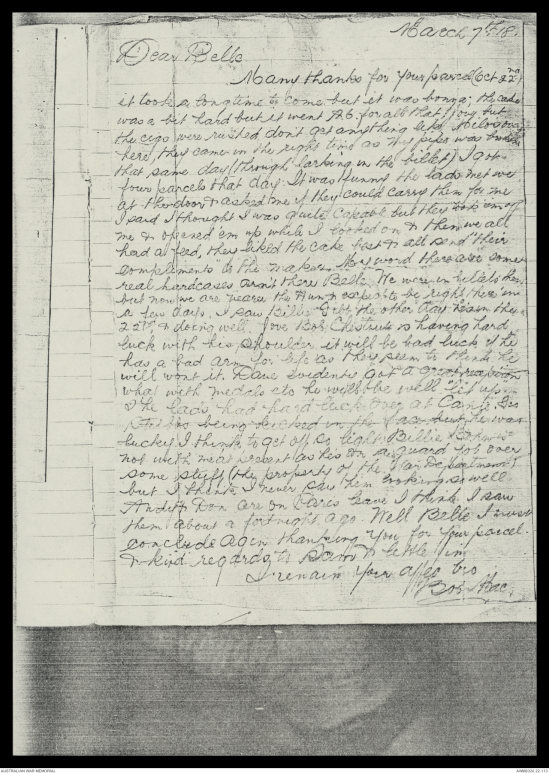 March 7th 18.
Dear Belle
Many thanks for your parcel (Oct 22nd)
it took a long time to come but it was bonza; the cake
was a bit hard but it went A6. for all that! joy but
the cigs were don't get anything left
here, they came in the right time as my pipe was
that same day (through larking in the billet) I got
four parcels that day. It was funny the lads met me
at the door & asked me if they could carry them for me
I said I thought I was quite capable but they took em off
me & opened em up while I looked on & then we all
had a feed, they liked the cake best & all send their
compliments to the maker. My word there are some
real hardcases aren't there Belle. We were in billets then
but now we are nearer the Hun & expect to be right there in
a few days. I saw Billie the other day, he's in the
22nd & doing well. Bob is having hard
luck with his shoulder it will be bad luck if he
has a bad arm for life as they seem to think he
will wont it. Dave evidently got a great reception
what with medals etc he will be well
The lads had hard luck over at
being kicked in the face but he was
lucky I think to get off so light. Billie
not with me at present as his on a guard job over
some stuff (the property of the War Department)
but I think I never saw them looking so well
& Don are on Paris leave I think I saw
them about a fortnight ago. Well Belle I must
conclude again thanking you for your parcel
& kind regards to Sam & little Jim
I remain your affec bro
Bob Mac.
AUSTRALIAN WAR MEMORIAL